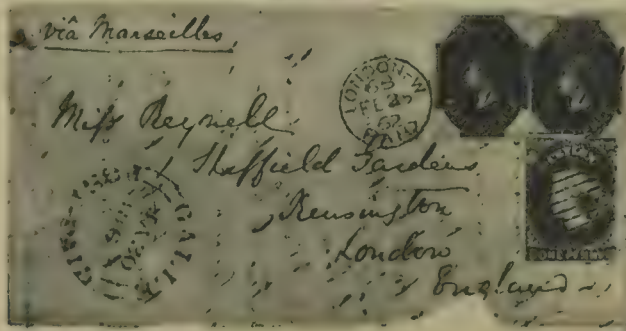 viâ Marseilles
LONDON-W
Miss Reynell
1 Sheffield Gardens
Kensington
London
England
GALLE